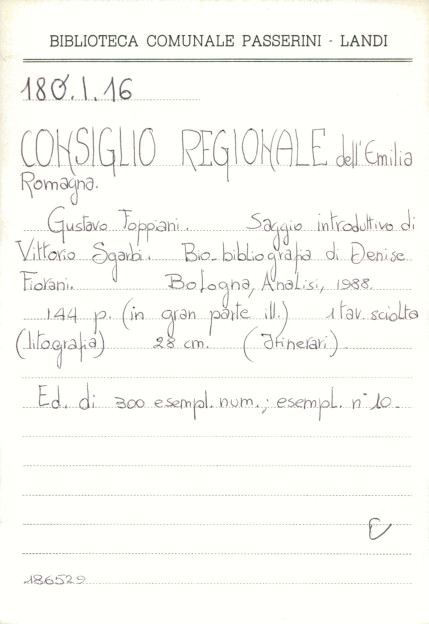 BIBLIOTECA COMUNALE PASSERINI - LANDI
180.I.16
CONSIGLIO REGIONALE dell'Emilia
Romagna.
Gustavo Foppiani. Saggio introduttivo di
Vittorio Sgarbi. Bio-bibliografia di Denise
Fiorani. Bologna, Analisi, 1988.
144 p. (in gran parte ill.) 1 tav. sciolta
(litografia) 28 cm. (Itinerari).
Ed. di 300 esempl. num.; esempl. n° 10.
186529